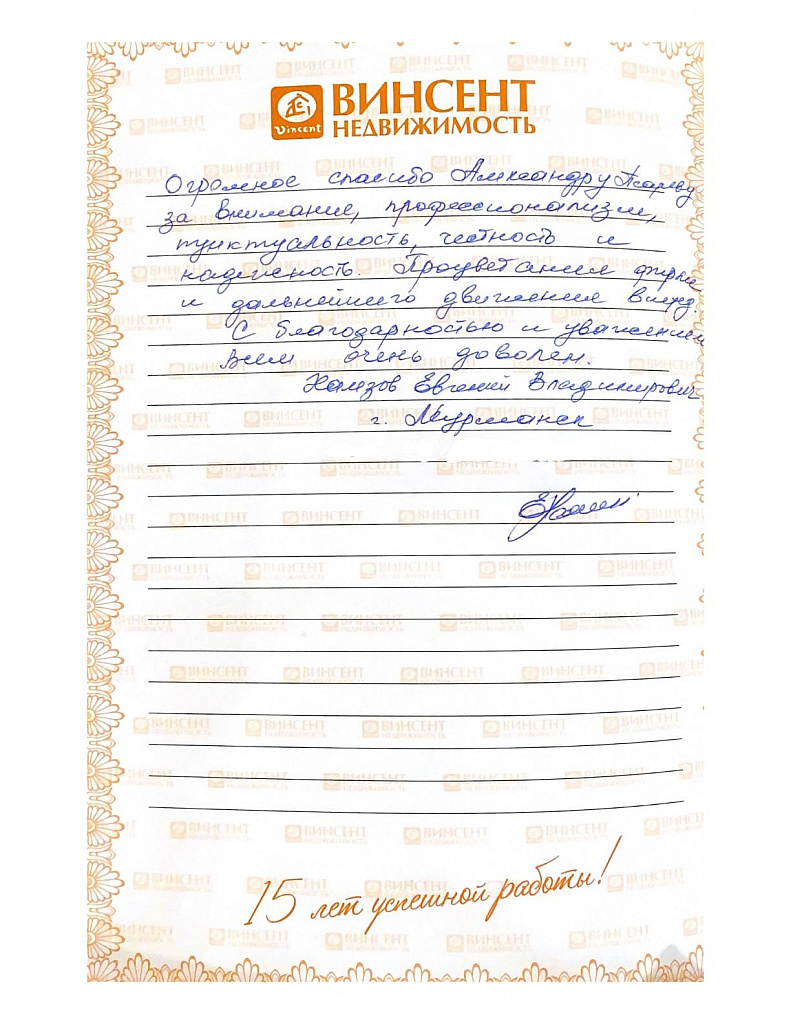 Vincent
ВИНСЕНТ
НЕДВИЖИМОСТЬ
Огромное спасибо Александру Псареву
за внимание, профессионализм,
пунктуальность, честность и
надежность. Процветания фирме
и дальнейшего движения вперед.
С благодарностью и уважением
Всем очень доволен.
Хамзов Евгений Владимирович
г. Мурманск
15 лет успешной работы!